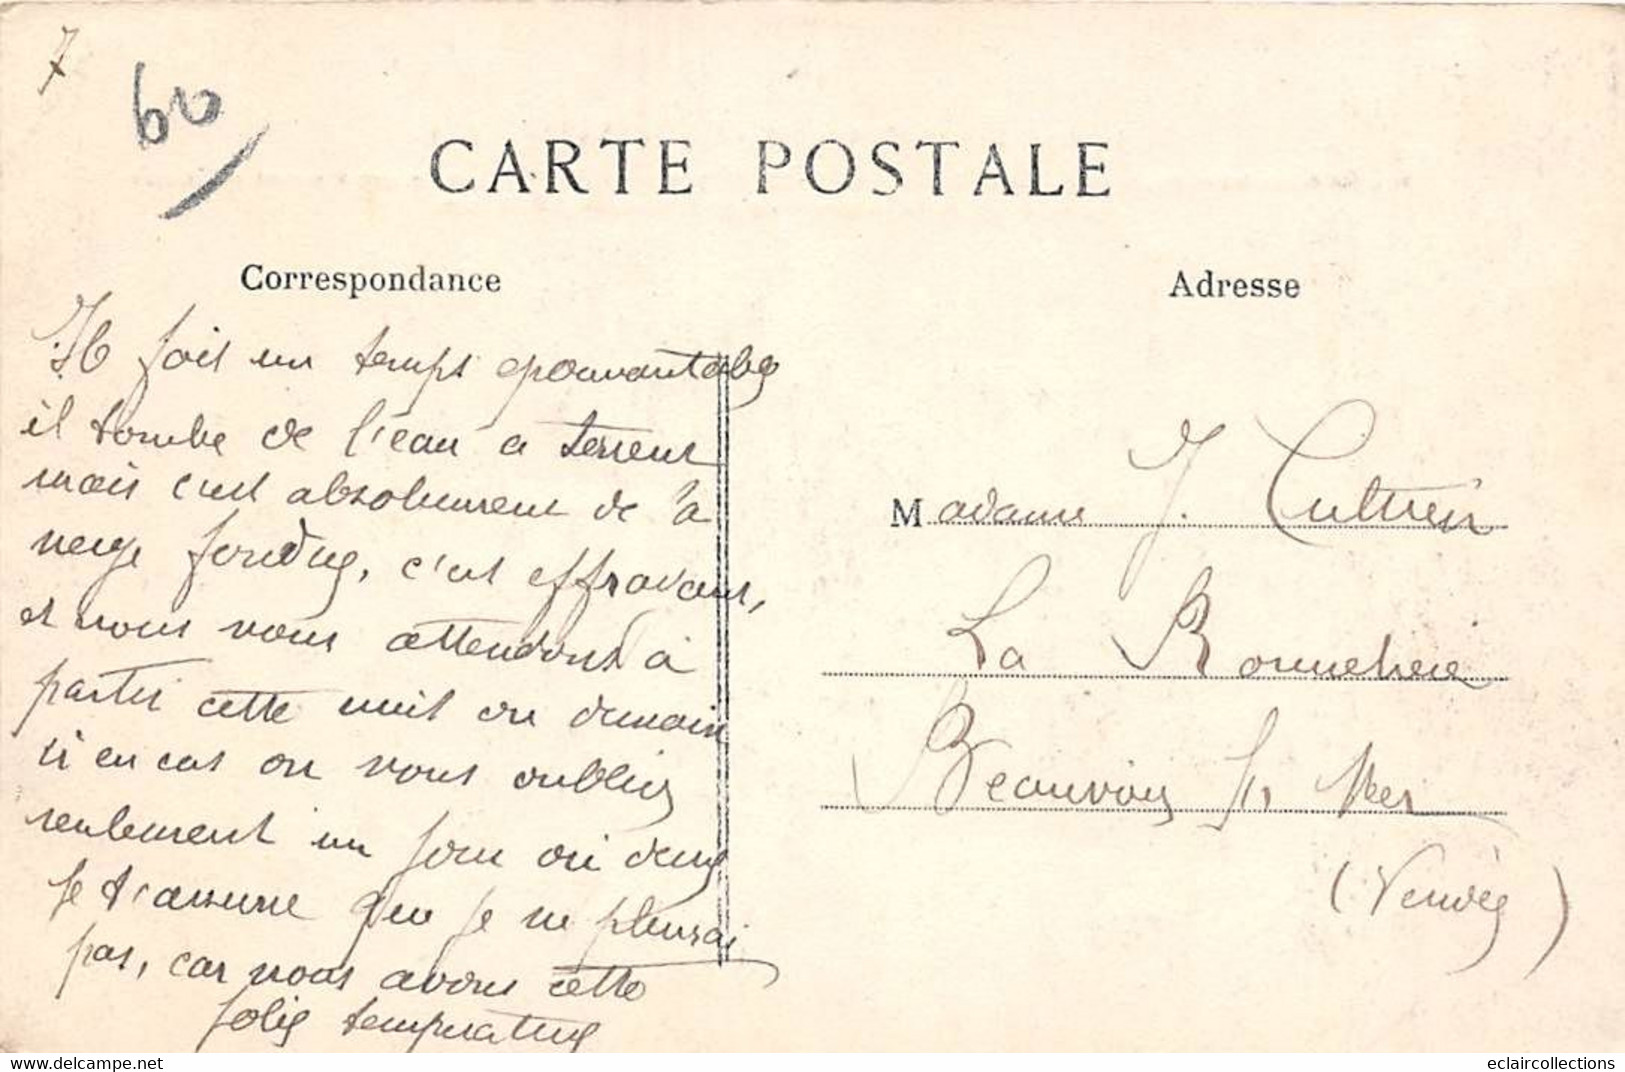 7
60
CARTE POSTALE
Correspondance
Adresse
Il fait un temps epouvantable
il tombe de l'eau a
mais c'est absolument de la
neige fondue, c'est effrayant,
et nous nous attendons à
partir cette nuit ou demain
si en cas on nous oublies
seulement un jour ou deux
Je t'assure que je ne pleurai
pas, car nous avons cette
jolie temperature
Madame J.
La Bonnetière
Beauvoir s/r Mer
(Vendée)
eclaircollections